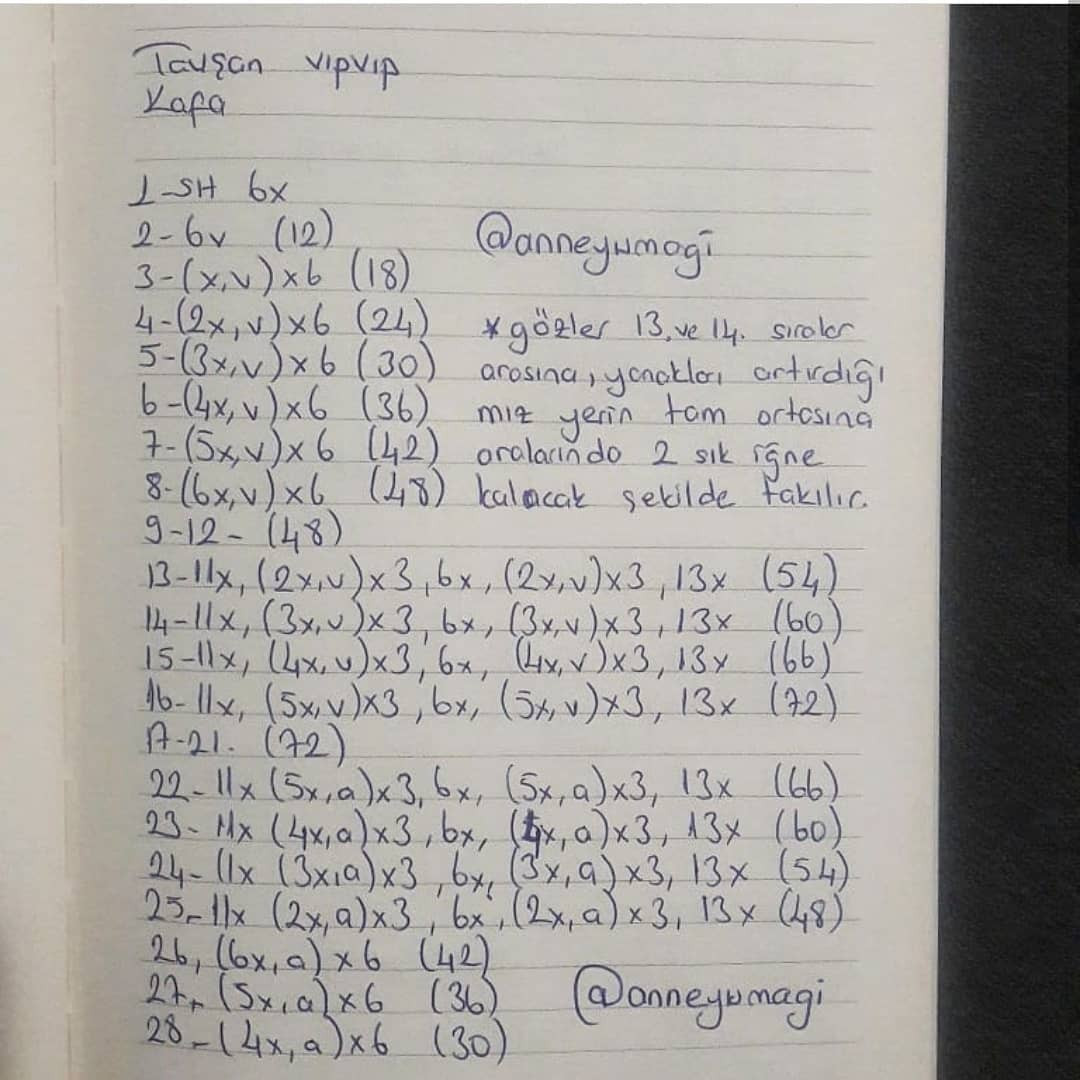 Tavşan vıpvıp
Kafa
1-SH 6x
2-6v (12)
@anneyumagi
3-(x,v)x6 (18)
4-(2x,v)x6 (24)
5-(3x,v)x6 (30)
6-(4x,v)x6 (36)
7-(5x,v)x6 (42)
8-(6x,v)x6 (48)
*gözler 13.ve 14. sıralar
arasına, yanakları artırdığı
mız yerin tam ortasına
aralarında 2 sık iğne
kalacak şekilde takılır.
9-12- (48)
13-11x, (2x,v)x3, 6x, (2x,v)x3, 13x (54)
14-11x, (3x,v)x3, 6x, (3x,v)x3, 13x (60)
15-11x, (4x,v)x3, 6x, (4x,v)x3, 13x (66)
16-11x, (5x,v)x3, 6x, (5x,v)x3, 13x (72)
17-21. (72)
22-11x (5x,a)x3, 6x, (5x,a)x3, 13x (66)
23-11x (4x,a)x3, 6x, (4x,a)x3, 13x (60)
24-11x (3x,a)x3, 6x, (3x,a)x3, 13x (54)
25-11x (2x,a)x3, 6x, (2x,a)x3, 13x (48)
26, (6x,a)x6 (42)
27- (5x,a)x6 (36)
28-(4x,a)x6 (30)
@anneyumagi